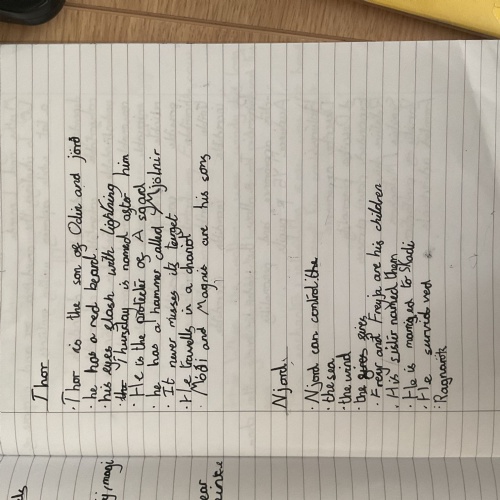 Thor
· Thor is the son of Odin and jörd
· he has a red beard.
· his eyes flash with lightning
· Thursday is named after him
· He is the protecter of Asgard
· he has a hammer called Mjölnir
It never misses its target
· He travells in a chariot
Móði and Magni are his sons
Njord.
· Njord can control the
· the sea
· the wind
· the fires
· Freyr and Freyja are his children
· His sister named them
· He is married to Skadi
· He survid ved
Ragnarök